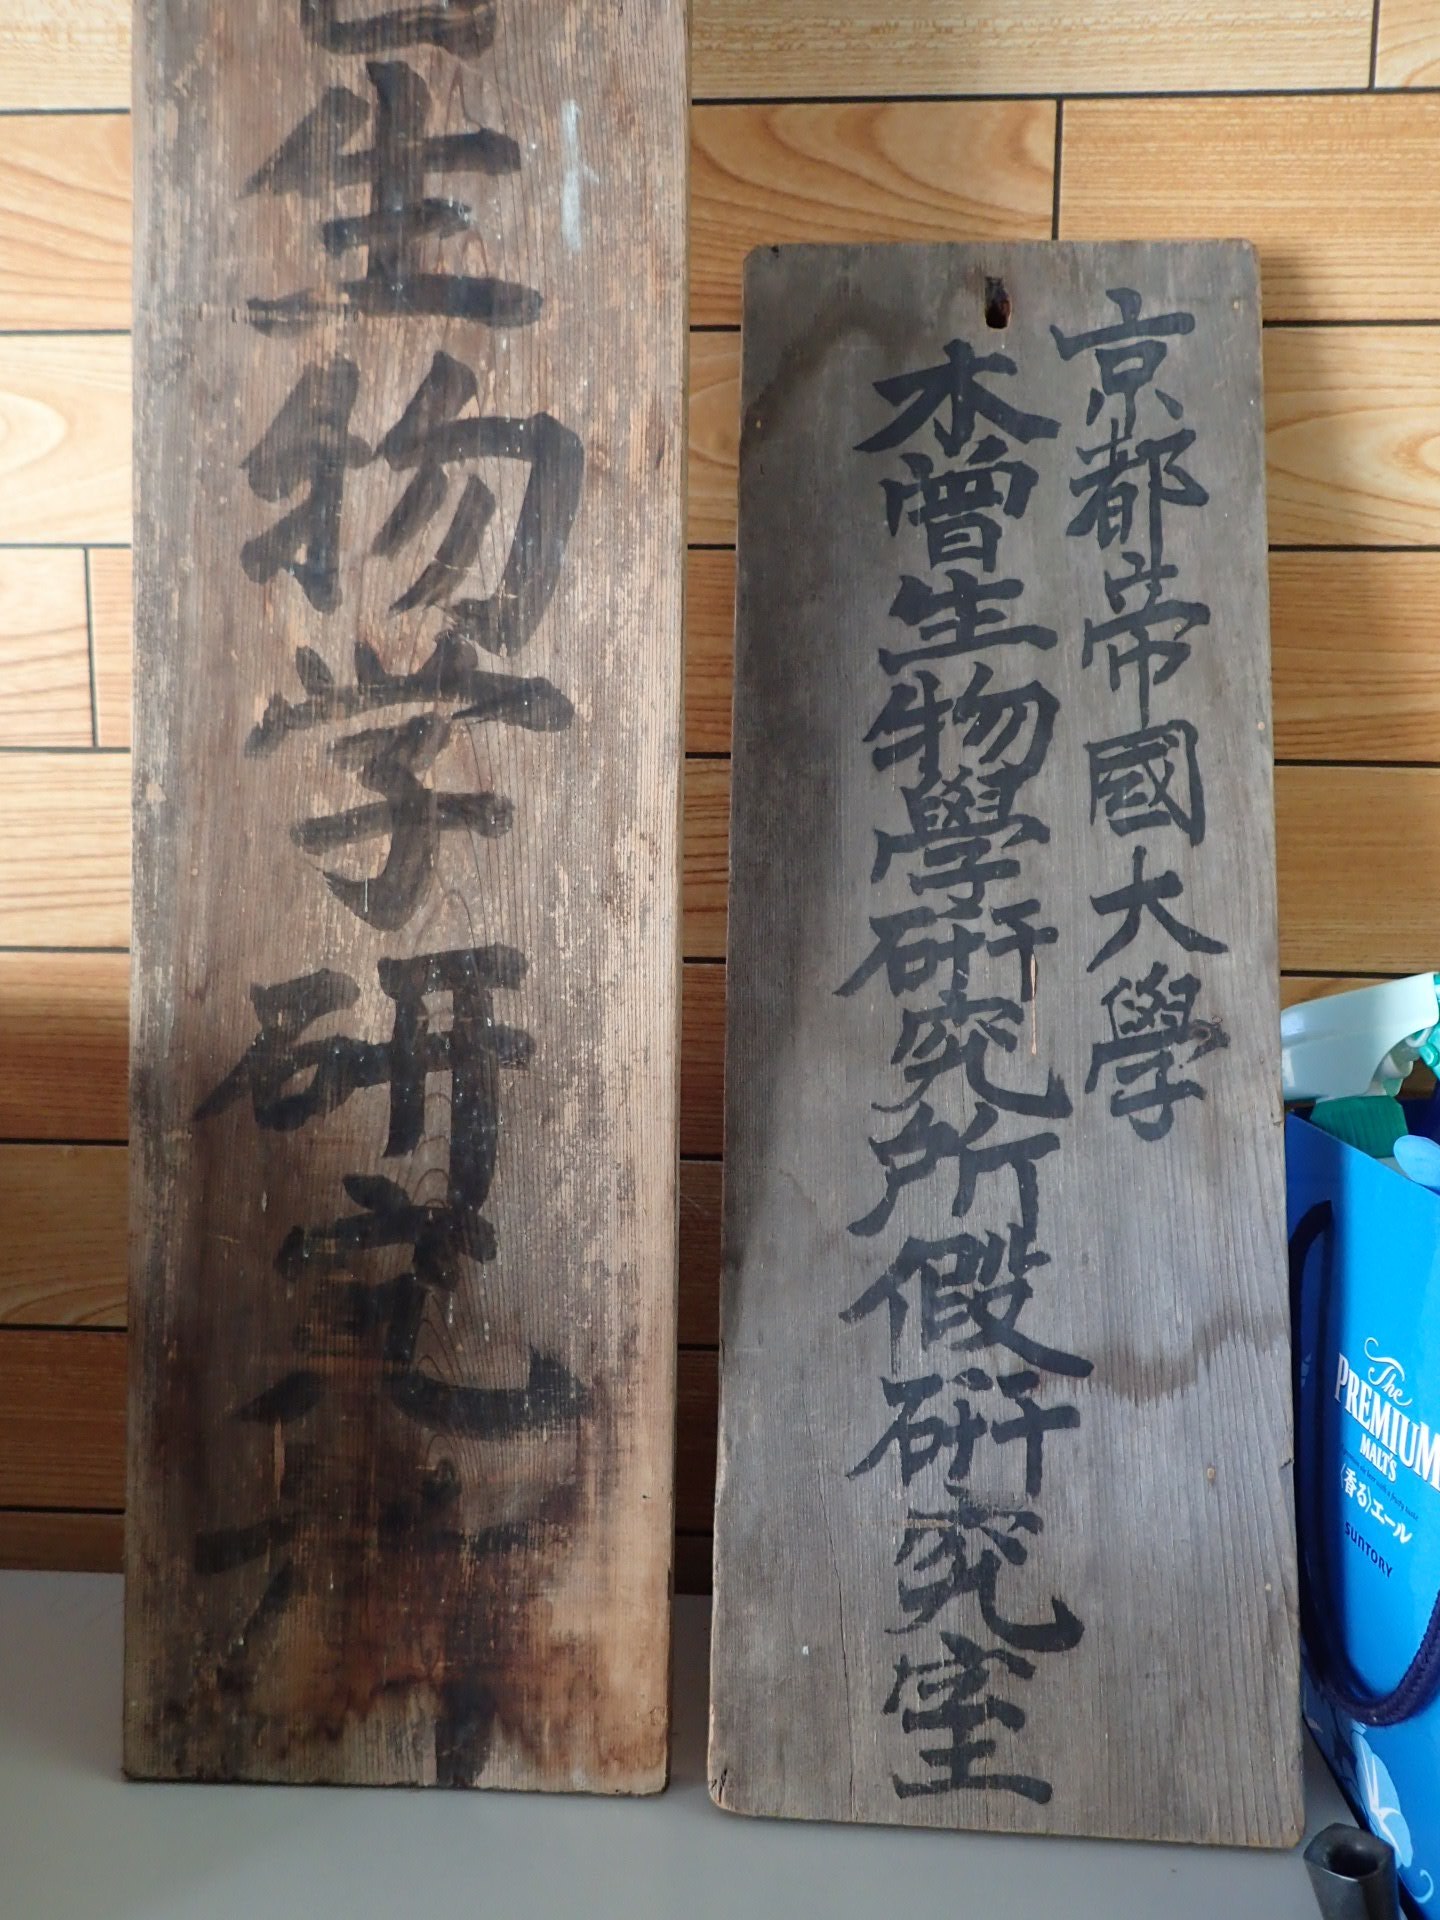 京都帝國大學
木曾生物學研究所假研究室
生物学研究所
The
PREMIUM
MALT'S
〈香る〉エール
SUNTORY